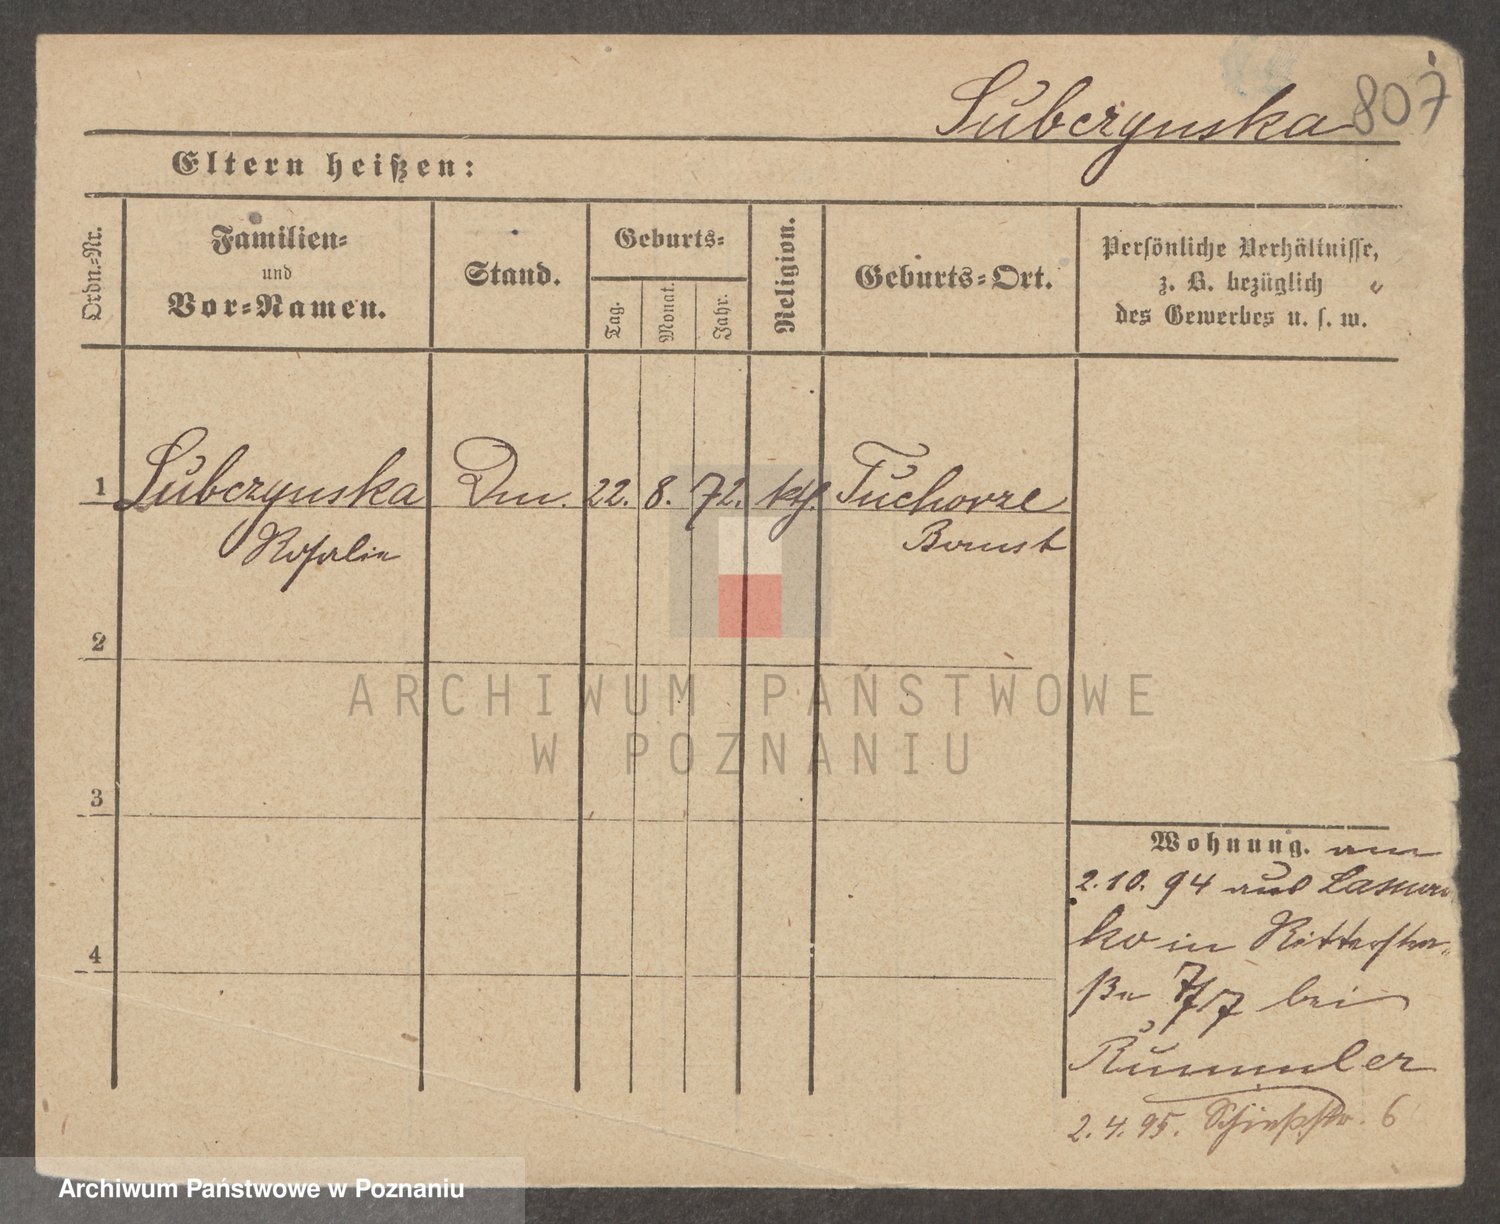 Lubczynska 807
Eltern heißen:
Ordn.-Nr.
Familien-
und
Vor-Namen.
Stand.
Geburts-
Tag.
Monat.
Jahr.
Religion.
Geburts-Ort.
Persönliche Verhältnisse,
z. B. bezüglich
des Gewerbes u. s. w.
1 Lubczynska Dm. 22. 8. 72. kth. Tuchorze
Rosalie Bomst
2
3
4
ARCHIWUM PAŃSTWOWE
W POZNANIU
Wohnung. am
2.10.94 aus
ko in Ritterstra-
ße 7/7 bei
Rummler
2.4.95. Schießstr. 6
Archiwum Państwowe w Poznaniu